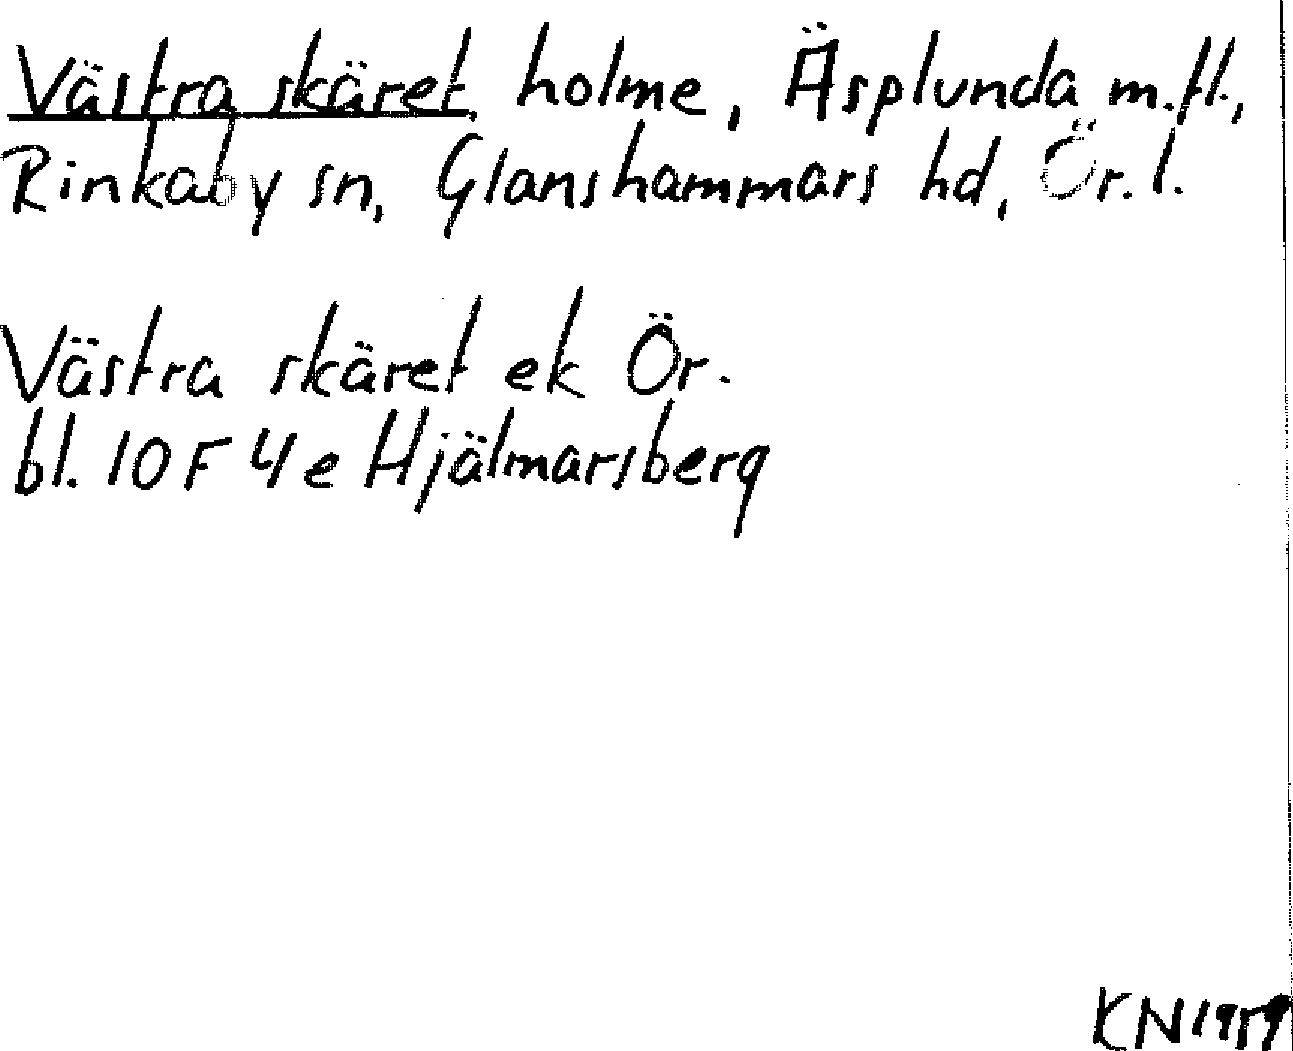 Västra skäret, holme, Äsplunda m.fl.,
Rinkaby sn, Glanshammars hd, Ör.l.
Västra skäret ek Ör.
bl. 10F 4e Hjälmarsberg
KN 1959